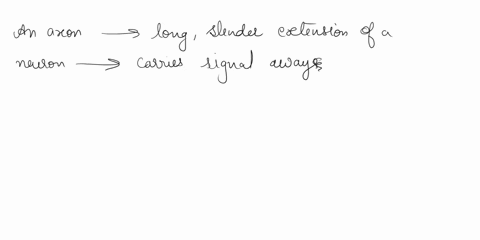 An axon → long, slender extension of a
neuron → carries signal away